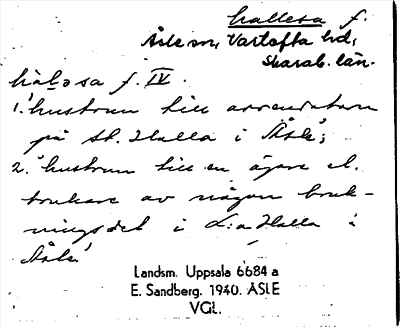 hallesa f.
Åsle sn, Vartofta hd,
Skarab. län.
hàl̥əsa f. IV.
1. 'hustrun till arrendatorn
på St. Halla i Åsle';
2. 'hustrun till en ägare el.
brukare av någon bruk-
ningsdel i L:a Halla i
Åsle'
Landsm. Uppsala 6684 a
E. Sandberg. 1940. ÅSLE
VGL.